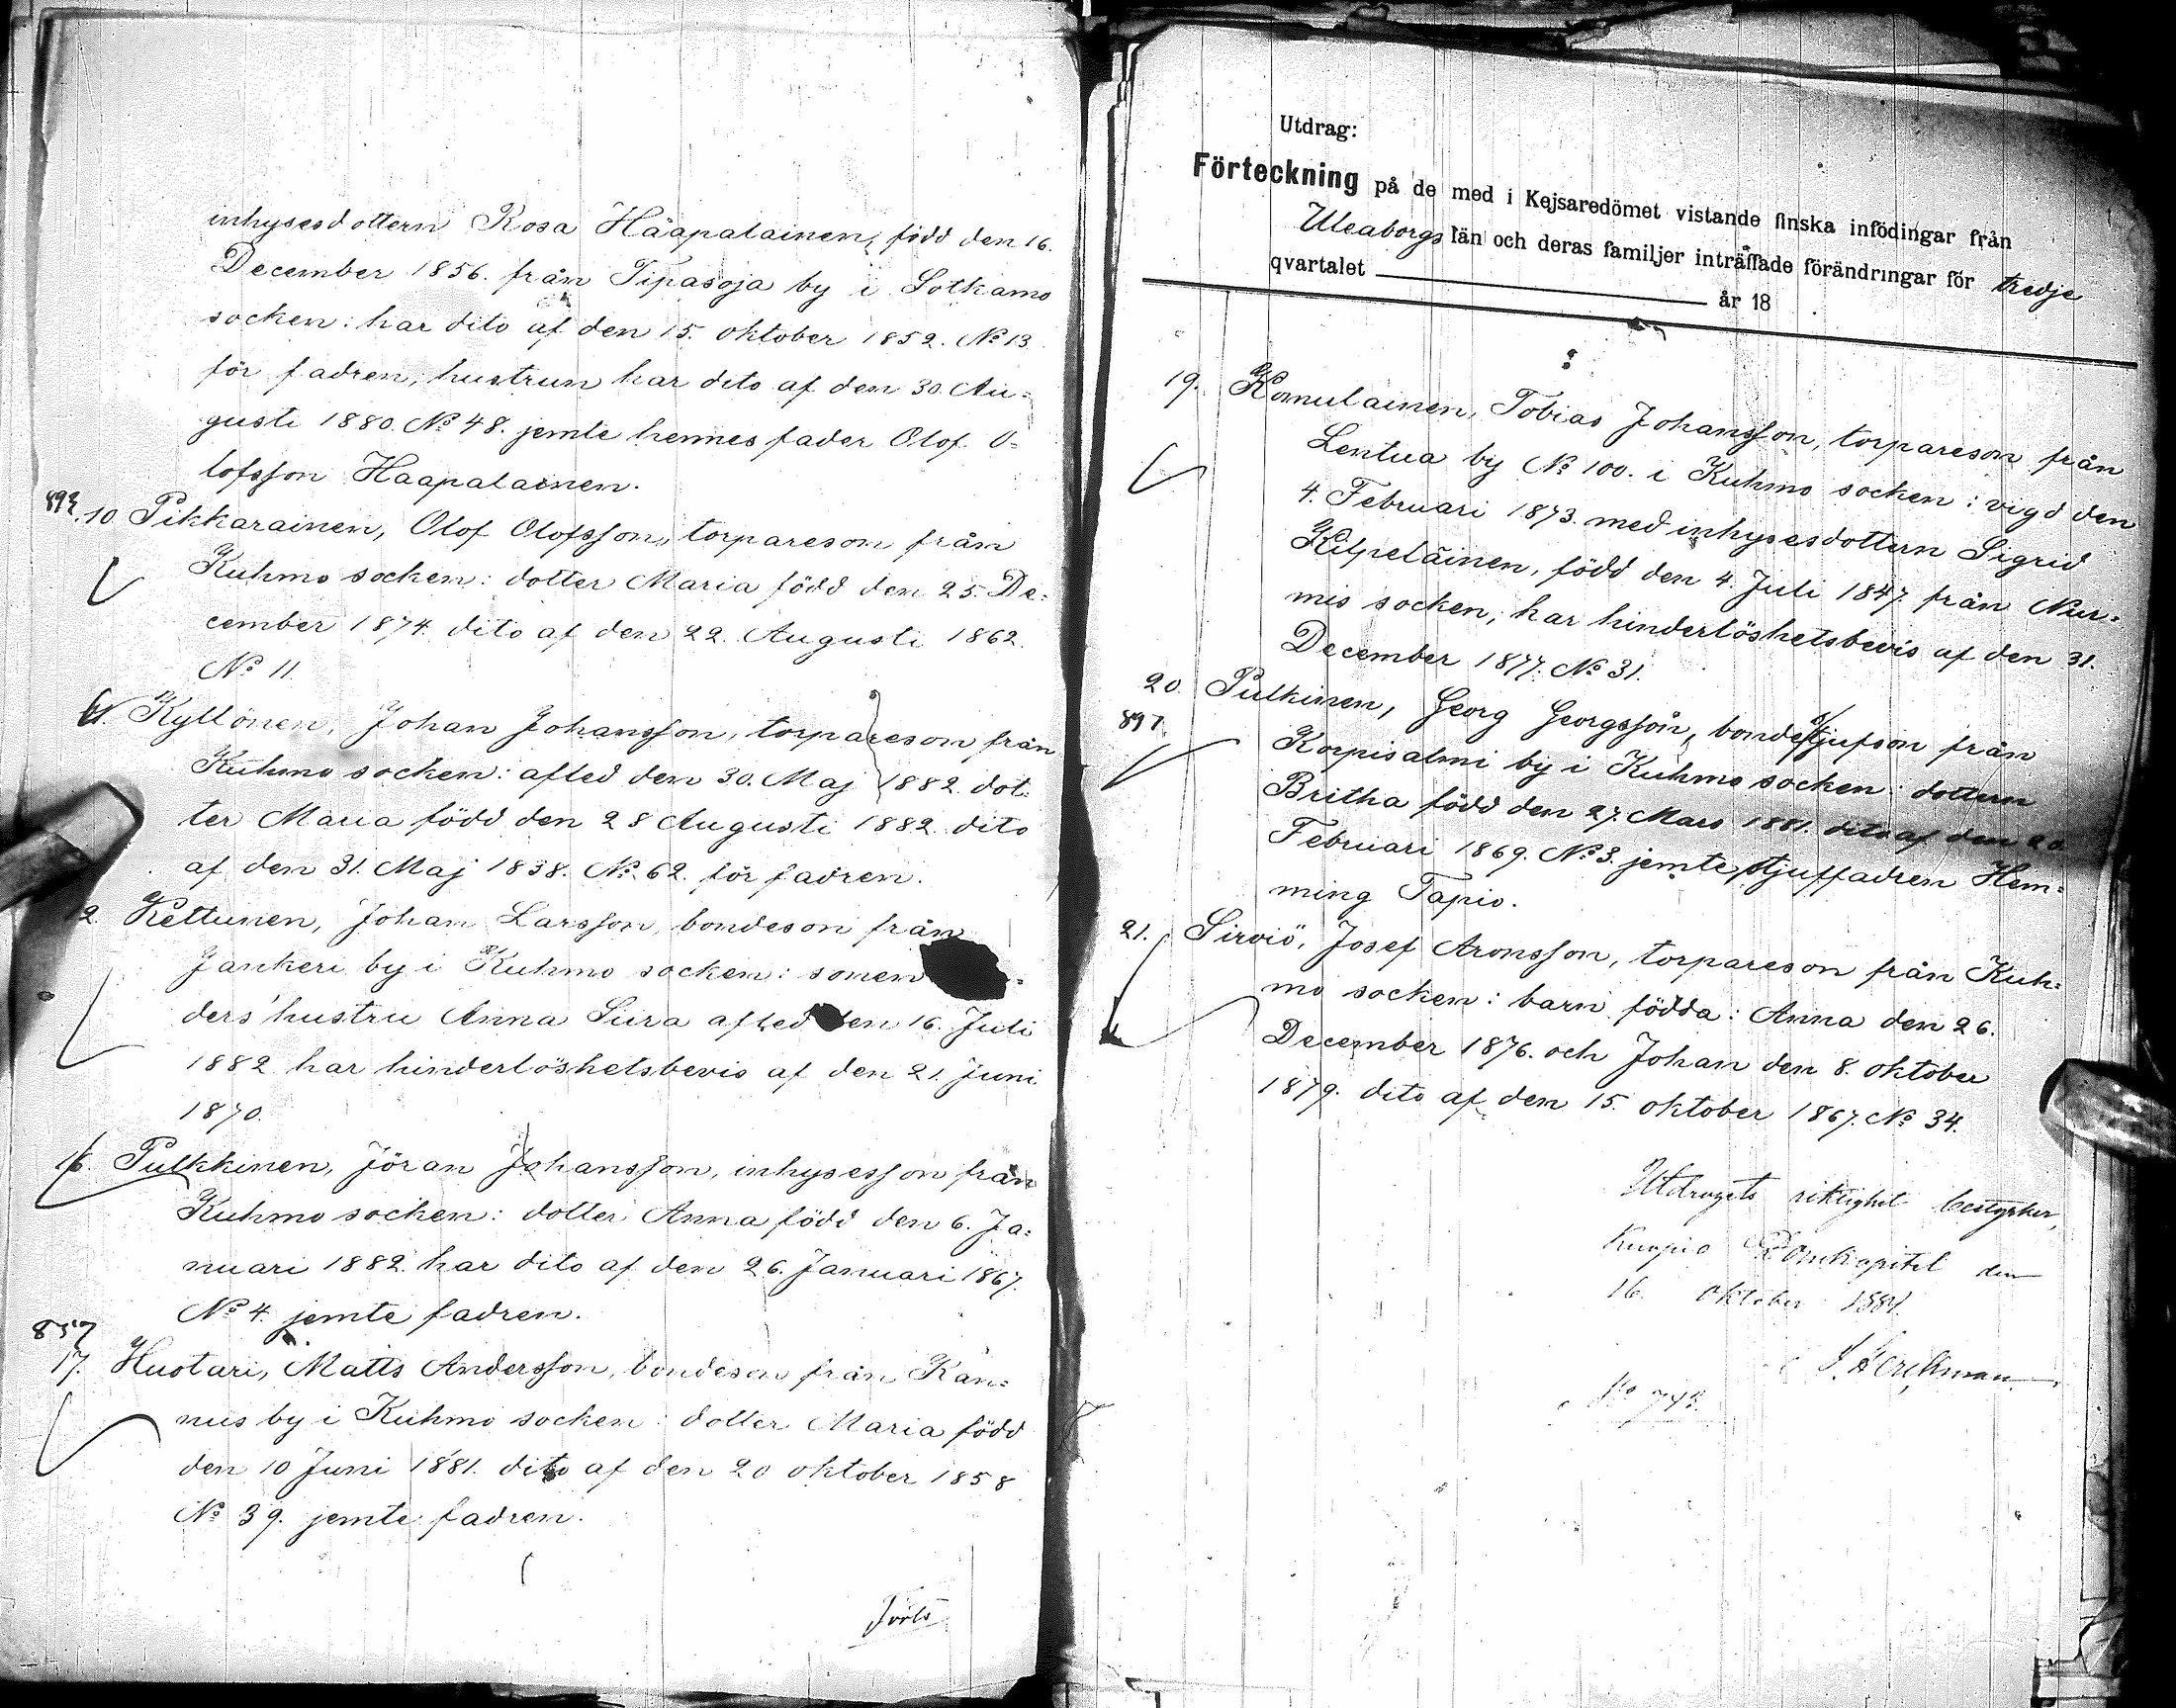 inhysesdottern Rosa Haapalainen, född den 16.
December 1856. från Tipasoja by i Sotkamo
socken: har dito af den 15. oktober 1852. No 13
för fadren, hustrun har dito af den 30. Au=
gusti 1880. No 48. jemte hennes fader Olof O=
lofsson Haapalainen.
893
10 Pikkarainen, Olof Olofsson, torpareson från
Kuhmo socken: dotter Maria född den 25. De=
cember 1874. dito af den 22. Augusti 1862.
No 11.
Kyllönen, Johan Johansson, torpareson från
Kuhmo socken: afled den 30. Maj 1882. dot=
ter Maria född den 28 Augusti 1882. dito
af den 31. Maj 1838. No 62. för fadren.
2. Kettunen, Johan Larsson, bondeson från
Jankeri by i Kuhmo socken: sonen
ders hustru Anna Siira afled den 16. Juli
1882 har hinderlöshetsbevis af den 21. Juni
1870.
16. Pulkkinen, Jöran Johansson, inhysesson från
Kuhmo socken: dotter Anna född den 6. Ja=
nuari 1882. har dito af den 26. Januari 1867.
No 4. jemte fadren.
857
17. Huotari, Matts Andersson, bondeson från Kan=
nus by i Kuhmo socken: dotter Maria född
den 10 Juni 1881. dito af den 20 oktober 1858
No 39. jemte fadren.
Utdrag:
Förteckning på de med i Kejsaredömet vistande finska infödingar från
Uleaborgs län och deras familjer inträffade förändringar för tredje
qvartalet år 18
19. Komulainen, Tobias Johansson, torpareson från
Lentua by No 100. i Kuhmo socken: vigd den
4. Februari 1873. med inhysesdottern Sigrid
Kilpeläinen, född den 4. Juli 1847. från Nur=
mis socken, har hinderlöshetsbevis af den 31.
December 1877. No 31.
20. Pulkinen, Georg Georgsson, bondestjufson från
897
Korpisalmi by i Kuhmo socken: dottern
Britha född den 27. Mars 1881. dito af den 20.
Februari 1869. No 3. jemte stjuffadren Hem=
ming Tapio.
21. Sirviö, Josef Aronsson, torpareson från Kuh=
mo socken: barn födda: Anna den 26.
December 1876. och Johan den 8. oktober
1879. dito af den 15. oktober 1867. No 34.
Utdragets riktighet bestyrker,
Kuopio Domkapitel den
16. oktober 1884.